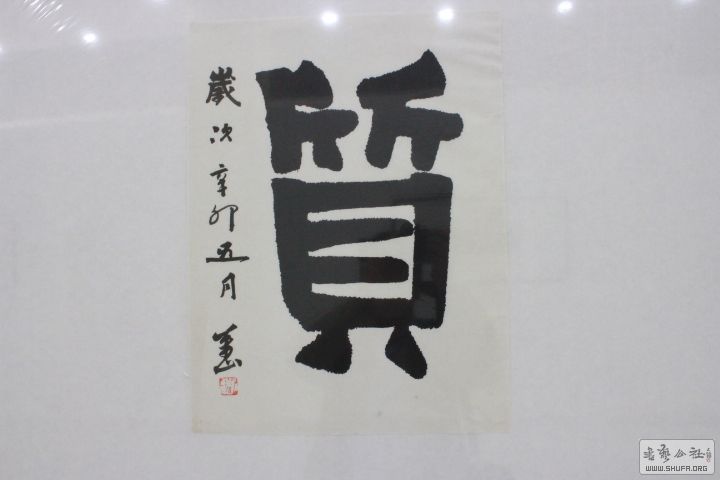 質
歲次辛卯五月
书艺公社
WWW.SHUFA.ORG